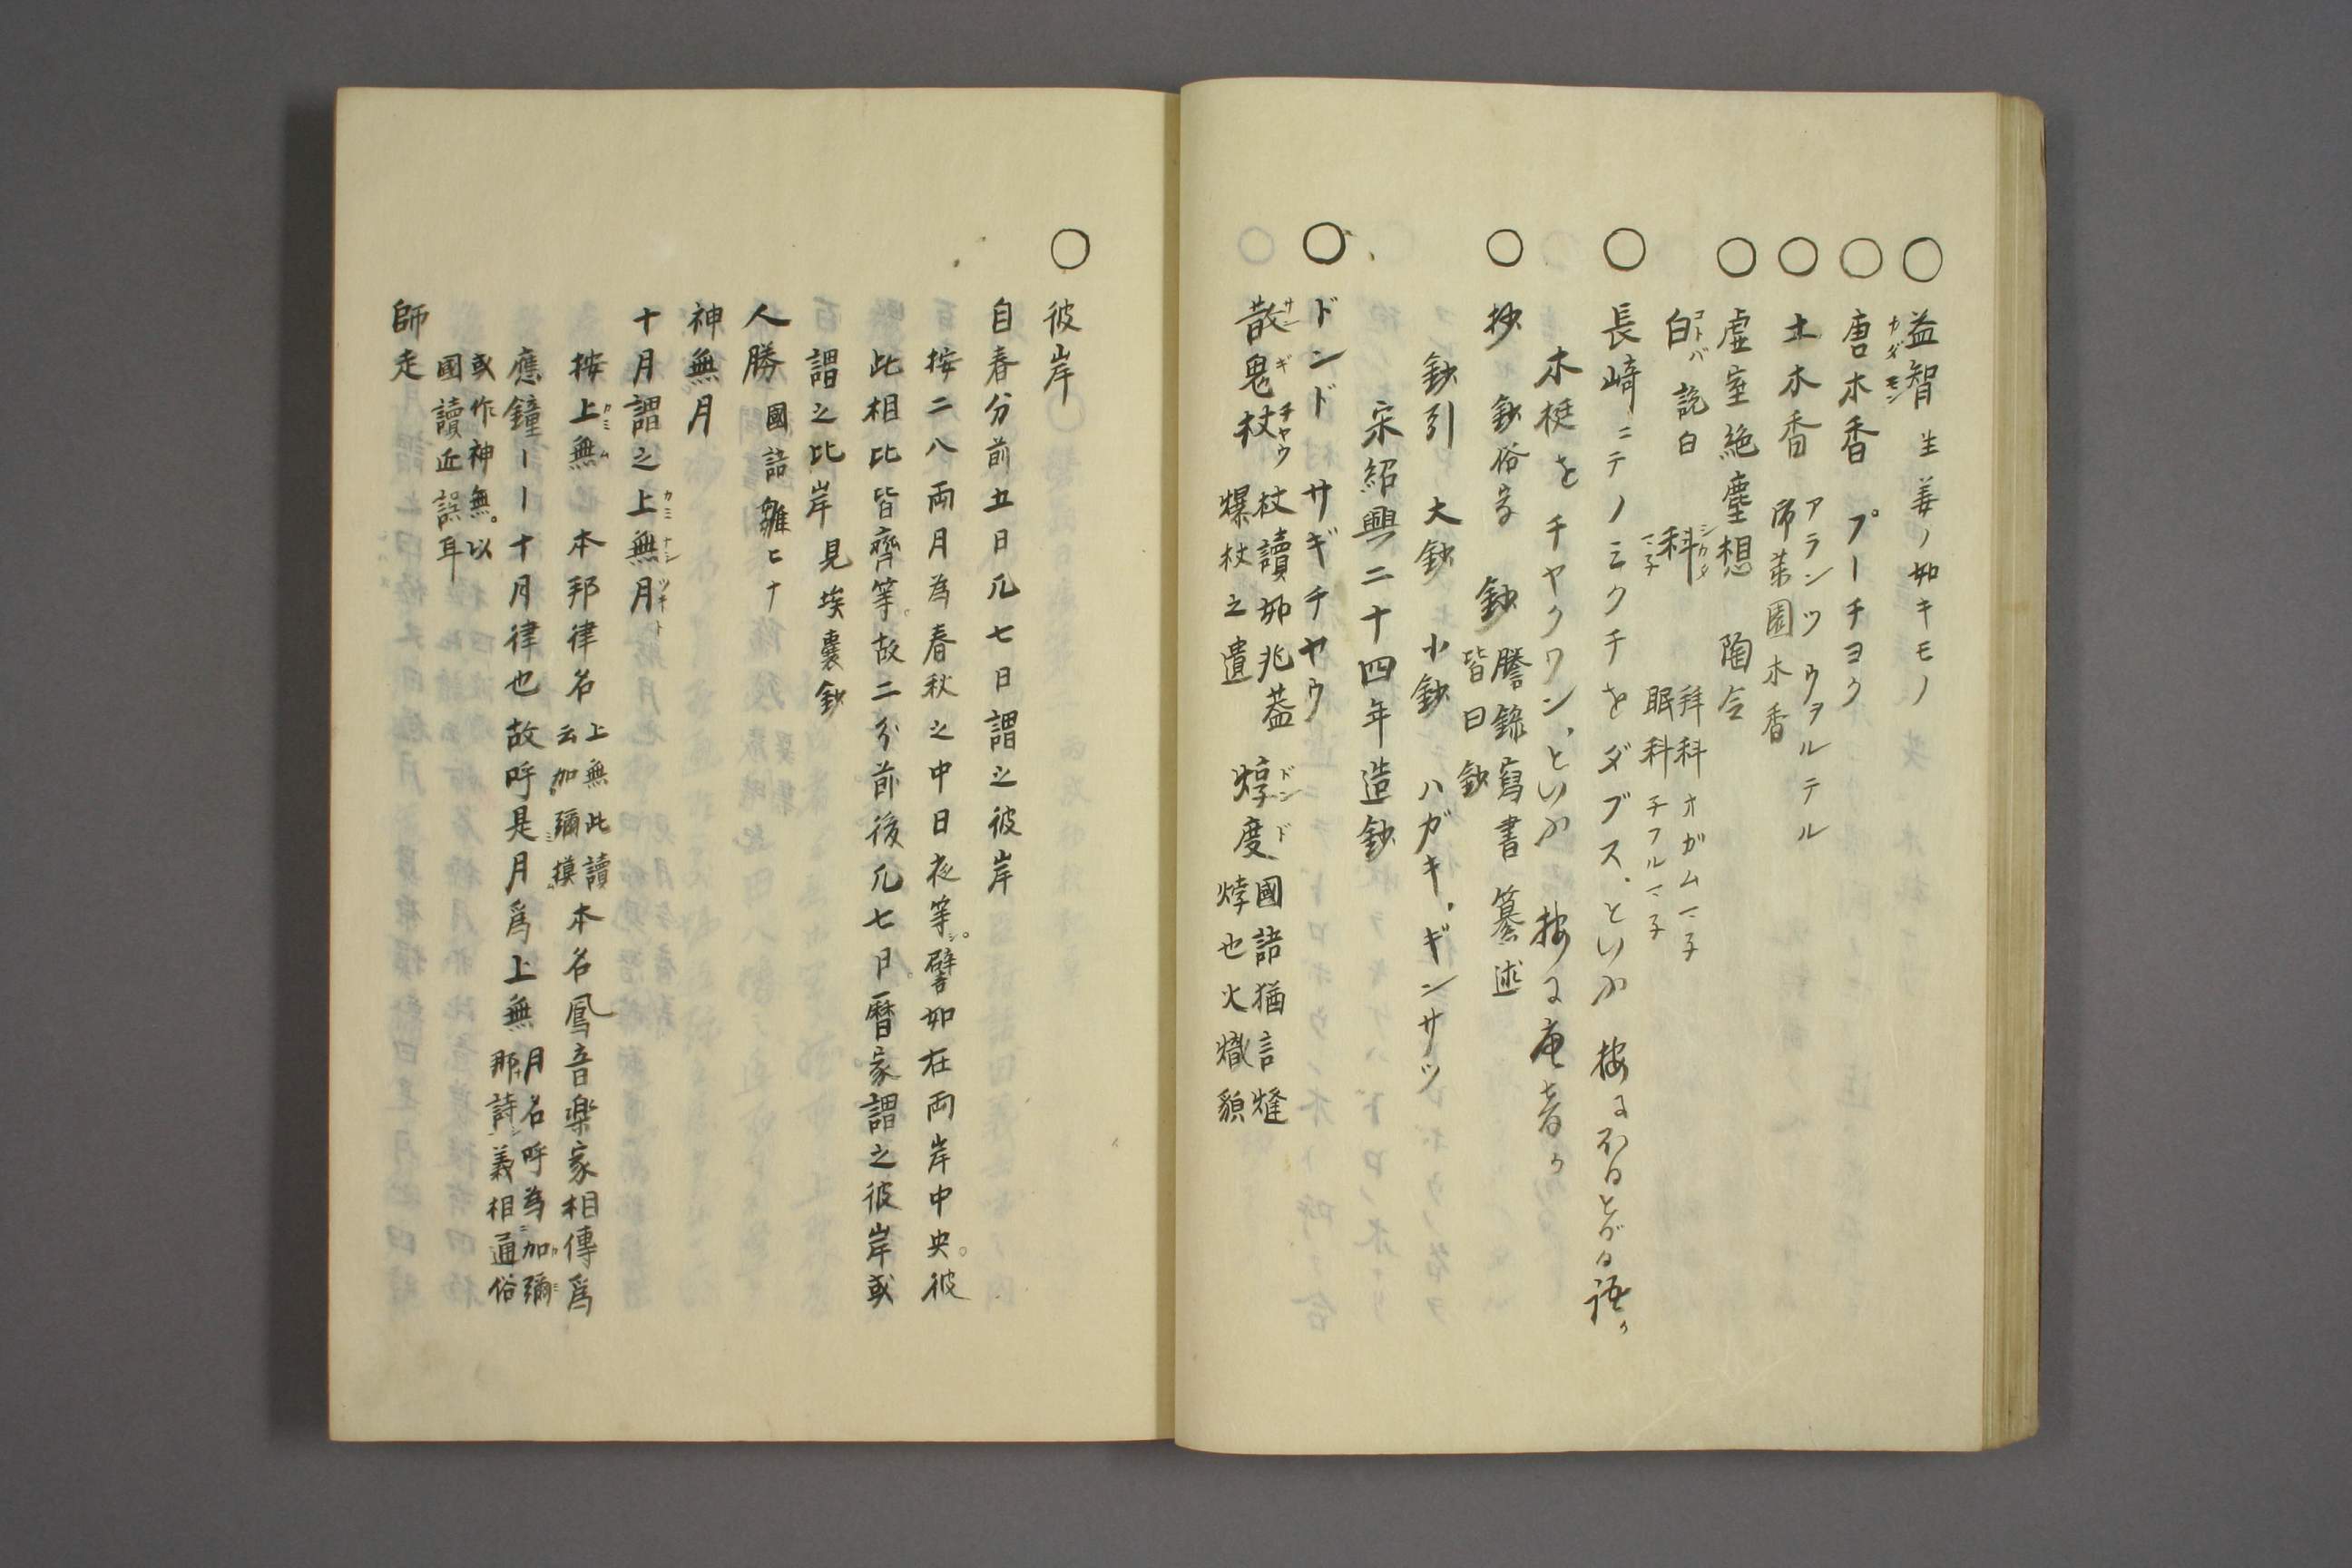 ○ 益智 生姜ノ如キモノ
カダモン
○ 唐木香 プーチヨク
○ 土木香 アランツウヲルテル
常葉園木香
○ 虚室絶塵想 陶令
白 説白 科 拜科 オガムマ子
コトバ シクサ マ子
眠科 チフルマ子
○ 長﨑ニテノミクチをダブス、といふ
木梃をチヤクワン、といふ 按る
○ 抄 鈔俗字 鈔 謄錄寫書纂述
皆曰鈔
鈔引 大鈔 小鈔 ハガキ、ギンサツ
宋紹興二十四年造鈔
○ ドンド サギチヤウ
散鬼杖 杖讀如兆蓋 焞度 國語猶言熢
サンギチヤウ ドンド
爆杖之遺 㶿也火熾貌
○ 彼岸
自春分前五日凡七日謂之彼岸
按二八兩月為春秋之中日夜等。譬如在両岸中央。彼
此相比皆齊等。故二分前後凡七日。暦家謂之彼岸或
謂之比岸 見埃嚢鈔
人勝 國語雛ヒナ
神無月
十月謂之上無月
カミナシツキト
按上無 本邦律名 上無此讀 本名鳳音楽家相傳爲
カミム
云加彌摸
應鐘ーー十月律也故呼是月爲上無 月名呼為加彌
那詩義相通俗
或作神無。以
國讀近誤耳
師走